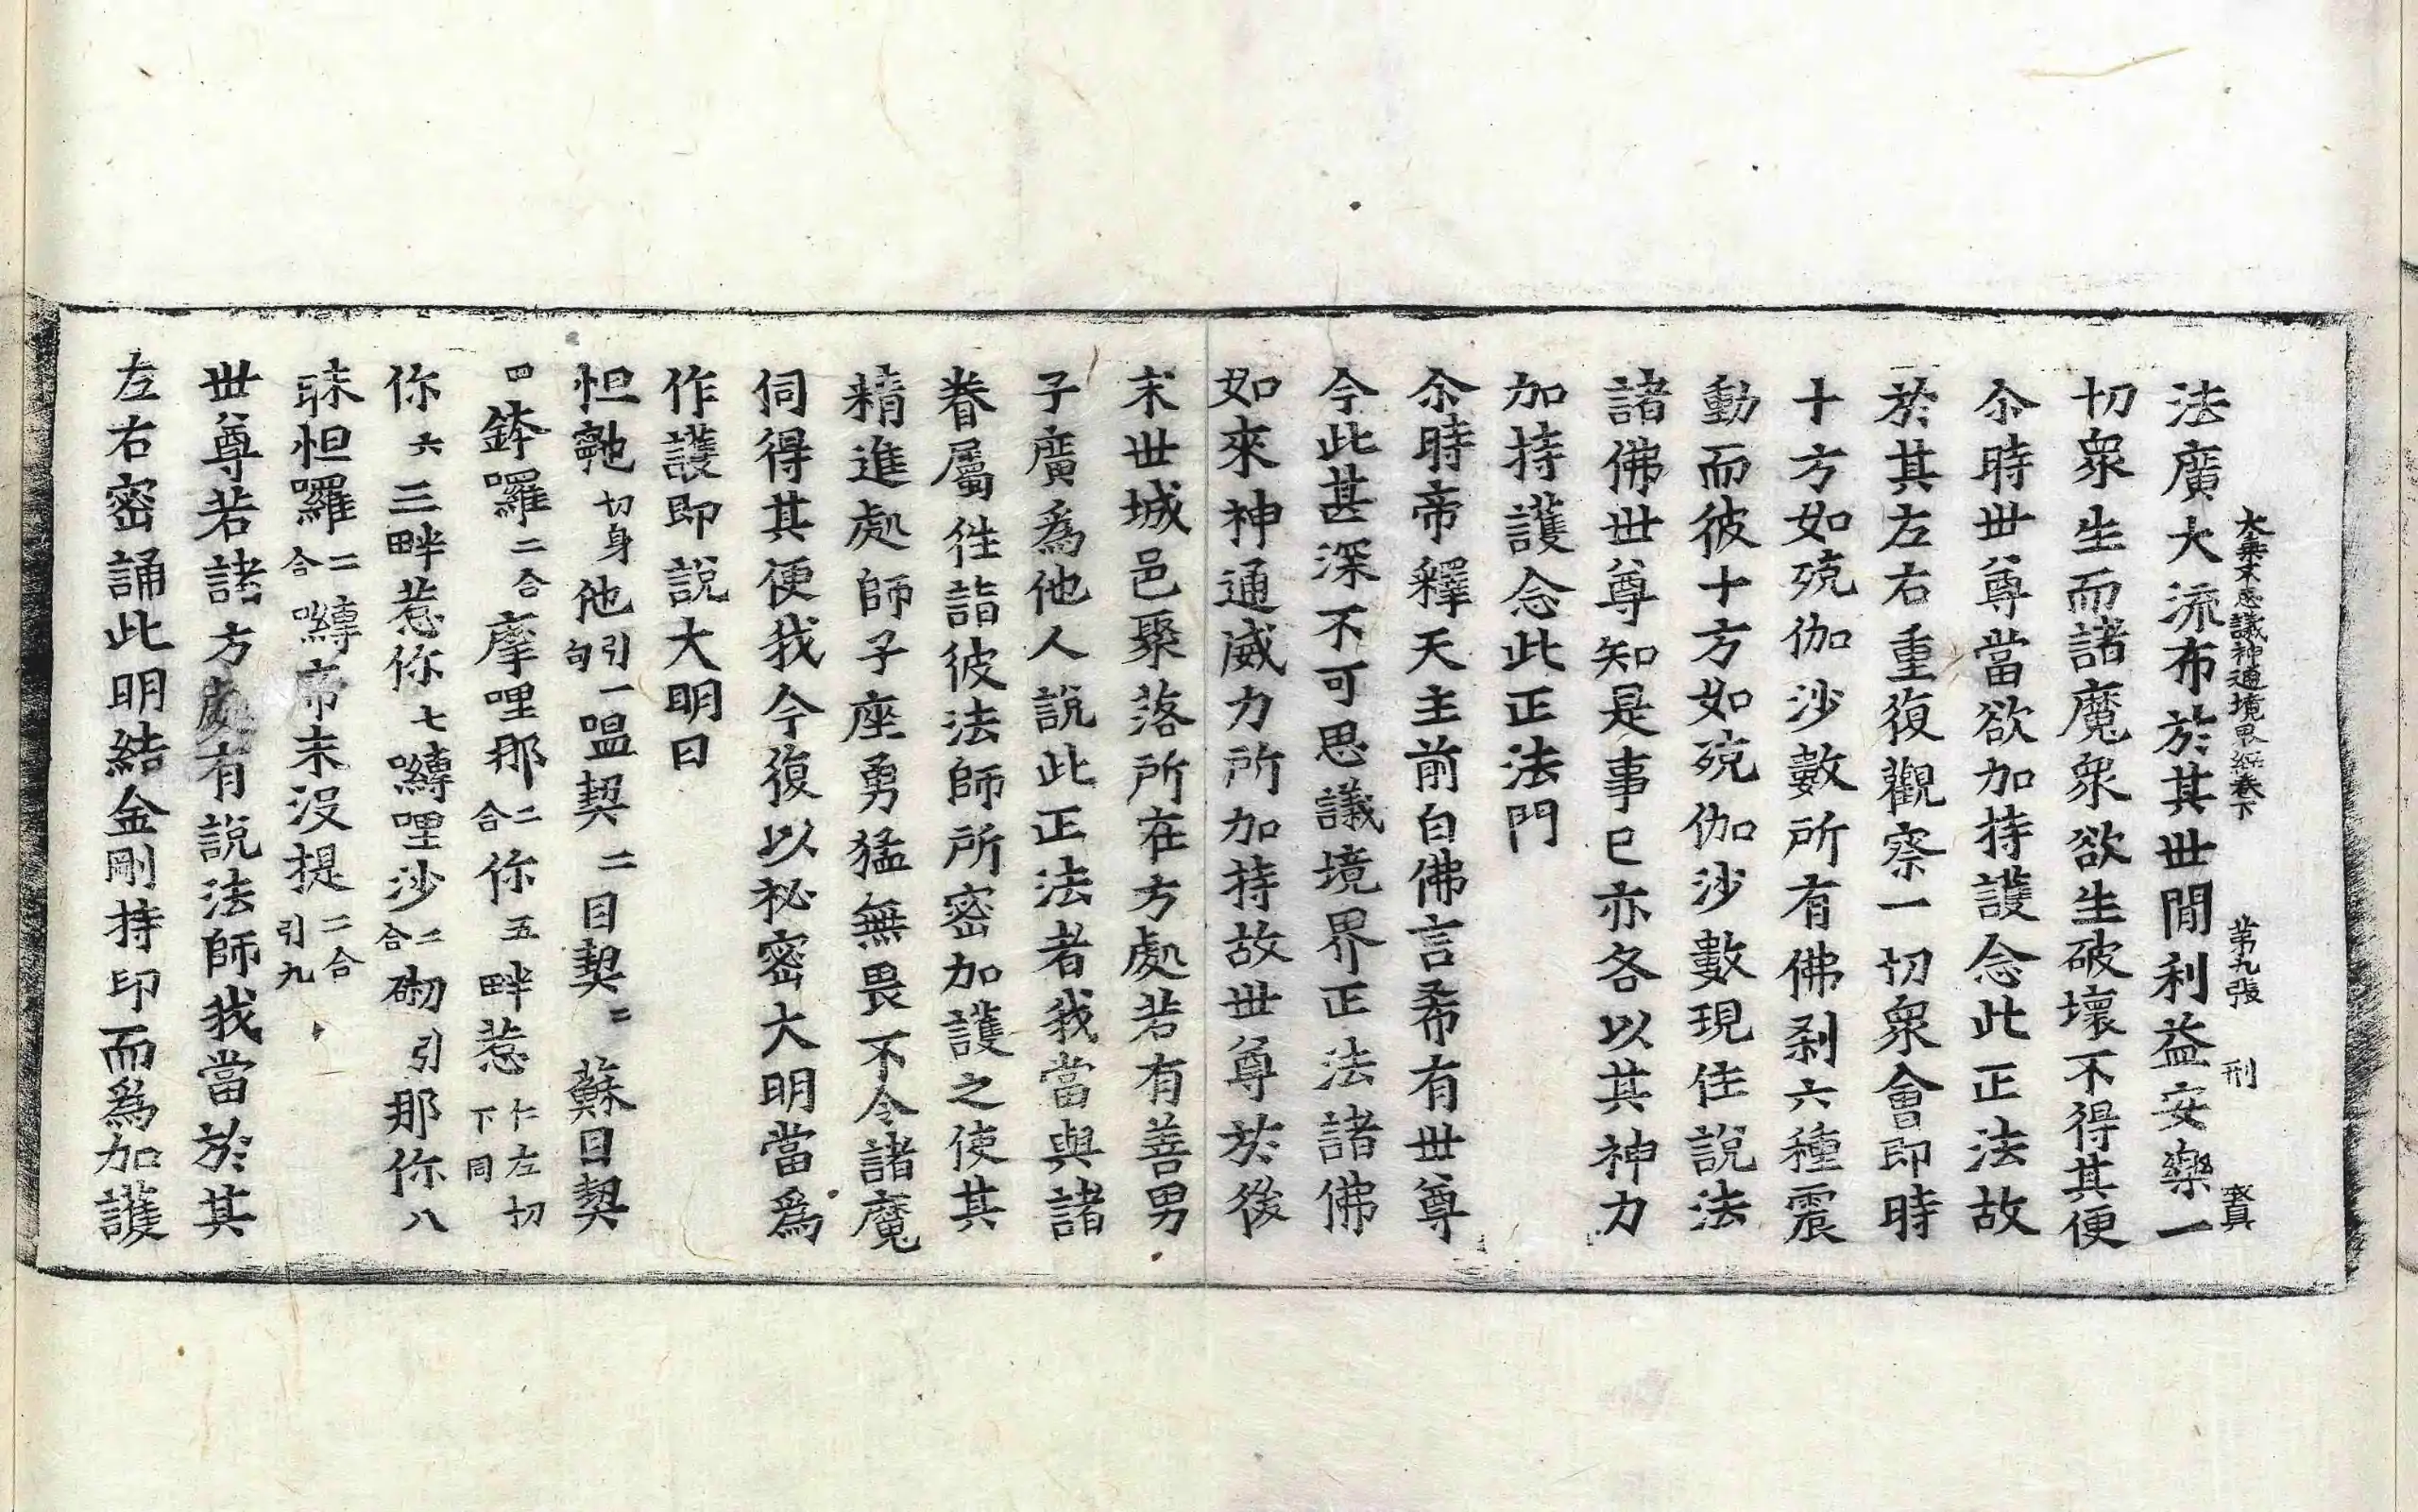 大乘不思議神通境界經卷下　第九張　刑　賓
法廣大流布於其世間利益安樂一
切衆生而諸魔衆欲生破壞不得其便
尒時世尊當欲加持護念此正法故
於其左右重復觀察一切衆會即時
十方如殑伽沙數所有佛刹六種震
動而彼十方如殑伽沙數現住說法
諸佛世尊知是事已亦各以其神力
加持護念此正法門
尒時帝釋天主前白佛言希有世尊
今此甚深不可思議境界正法諸佛
如來神通威力所加持故世尊於後
末世城邑聚落所在方處若有善男
子廣爲他人說此正法者我當與諸
眷屬徃詣彼法師所密加護之使其
精進處師子座勇猛無畏不令諸魔
伺得其便我今復以祕密大明當爲
作護即說大明曰
怛䭾切身他引句一嗢契二目契三蘇目契
四鉢囉二合摩哩那二合你五畔惹仁左切下同
你六三畔惹你七嚩哩沙二合砌引那你八
昩怛囉二合嚩帝末沒提二合引九
世尊若諸方處有說法師我當於其
左右密誦此明結金剛持印而爲加護